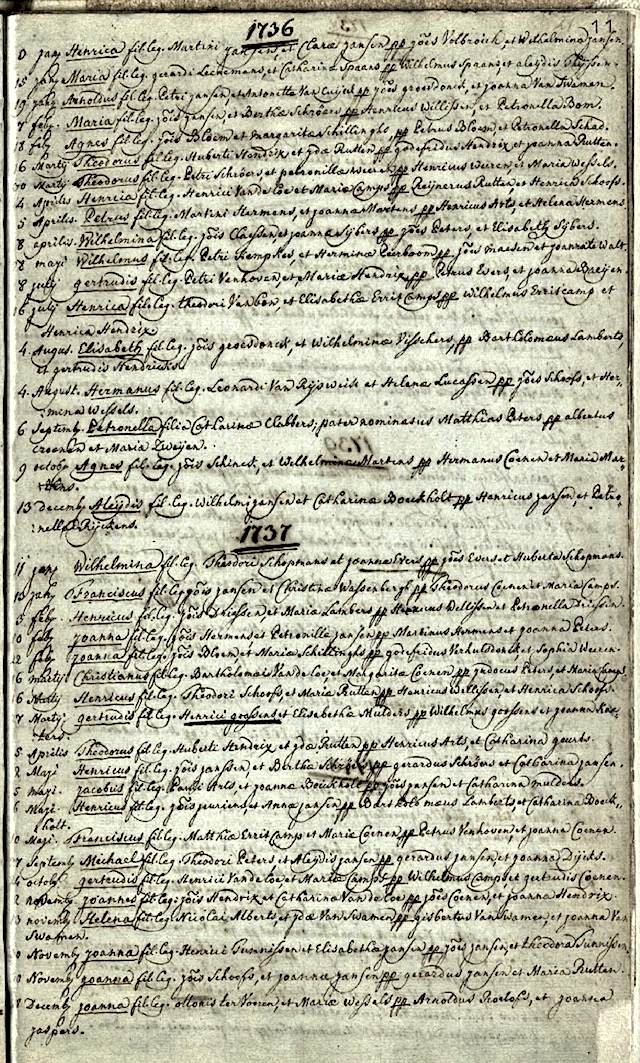 11
1736
0 janŷ Henrica fil: leg. Martini jansen, et Claræ jansen pp jões Volbroich et Wilhelmina jansen
15 janŷ Maria fil: leg. gerardi Leenemans, et Catharina Spaans pp Wilhelmus Spaans, et aleydis
19 janŷ Arnoldus fil: leg. Petri jansen et Antonetta Van Cuijck pp jões groesdonck, et joanna Van Swamen.
7 febŷ. Maria fil: leg. jõis jansen, et Bertha Schröers pp Henricus Willissen, et Petronella Bom.
18 febŷ Agnes fil: leg. jõis Bloem et margarita Schillinghs, pp Petrus Bloem, et Petronella Schad.
6 Martŷ Theodorus fil: leg. Huberti Hendrix et ydæ Rutten pp godefridus Hendrix et joanna Rutten.
30 Martŷ Theodorus fil: leg. Petri Schröers, et petronilla weeren pp Henricus weeren, et Maria Wessels.
4 Aprilis Henrica fil: leg. Henrici Van de Loe et Mariæ Camps pp Reijnerus Rutten et Henrica Schoofs.
5 Aprilis. Petrus fil: leg. Martini Hermens, et joanna Martens pp Henricus Arts, et Helena Hermens
8 aprilis. Wilhelmina fil: leg. jõis Claessen et joanna Sijbers pp jões Peters, et Elisabeth Sijbers.
8 maji Wilhelmus fil: leg. Petri Kempkes, et Hermina Peerboom pp jões maesen et joanna te Walt.
8 julŷ gertrudis fil: leg. Petri Venhoven, et Mariæ Hendrix pp Petrus Evers et joanna Breijen.
16 julŷ Henrica fil: leg. theodori Van bon, et Elisabethæ Erritcamps pp Wilhelmus Erritcamp et
Henrica Hendrix.
4. Augus. Elisabeth fil: leg. jõis groesdonck, et Wilhelminæ Visschers, pp Bartholomæus Lamberts,
et gertrudis Hendricks.
4. August. Hermanus fil: leg. Leonardi Van Rijswick et Helenæ Lucassen pp jões Schoofs, et Her-
:mina Wessels.
6 Septembŷ. Petronella filia Catharinæ Clabbers; pater nominatus Matthias Peters pp albertus
croenen et Maria Zweijen.
9 octobŷ Agnes fil: leg. jõis Schinck, et Wilhelminæ Martens pp Hermanus Coenen et Maria Mar-
tens.
13 decembŷ Aleijdis fil: leg. Wilhelmi jansen, et Catharinæ Boeckholt pp Henricus jansen et Petro-
:nella Rijckens.
1737
11 janŷ Wilhelmina fil: leg. Theodori Schopmans et joanna Evers pp jões Evers et Huberta Schopmans.
10 janŷ Franciscus fil: leg jõis jansen et Christina Wassenbergh pp Theodorus Coenen et Maria Camps.
5 febŷ. Henricus fil: leg. jõis Driessen, et Maria Lambers pp Henricus Delissen et Petronella Driessen.
0 febŷ joanna fil: leg. jõis Hermens et Petronilla jansen pp Martinus Hermens et joanna Peters.
22 febŷ joanna fil: leg. jõis Bloem et Mariæ Schillinghs pp godefridus Verhulsdonck et Sophia Weeren.
6 martŷ Christianus fil: leg. Bartholomæi Van de Loe et Margarita Coenen, pp judocus Peters, et Maria Camps
6 Martŷ Henricus fil: leg. Theodori Schoofs et Maria Rutten pp Henricus Bellissen et Henrica Schoofs.
7 Martŷ gertrudis fil: leg. Henrici goossens et Elisabethæ Mulders pp Wilhelmus goossens et joanna
:ters.
5 Aprilis Theodorus fil: leg. Huberti Hendrix et ydæ Rutten pp Henricus Arts, et Catharina geurts.
2 Maji Henricus fil: leg. jõis janssen, et Bertha Schröers pp gerardus Schröers et Catharina jansen.
5 maji jacobus fil: leg. Pauli Arts, et joanna Boeckholt pp jões jansen et Catharina mulders.
6 Maji. Henricus fil: leg. jõis jeuriens et Annæ jansen pp Bartholomæus Lamberts et Catharina Boeck-
:holt.
10 Maji. Franciscus fil: leg. Matthiæ Erritcamp et Mariæ Coenen pp Petrus Venhoven, et joanna Coenen.
7 Septembŷ Michael fil: leg. Theodori Peters et Aleijdis jansen pp gerardus jansen et joanna Dijcks.
4 octobŷ gertrudis fil: leg. Henrici Van de Loe et Maria Camps pp Wilhelmus Camps, et gertrudis Coenen.
2 novembŷ joannes fil: leg: jõis Hendrix et Catharina Van de Loe pp jões Coenen, et joanna Hendrix
13 novembŷ Helena fil: leg Nicolai Alberts, et ydæ Van Swamen pp gisbertus Van Swamen, et joanna Van
Swamen.
Novembŷ joanna fil: leg. Henrici Tunnissen et Elisabethæ jansen pp jões jansen, et theodora Tunnissen
Novembŷ joanna fil: leg. jõis Schoofs, et joanna jansen pp gerardus jansen et Maria Rutten.
Decembŷ joanna fil: leg. ottonis ter Voeren, et Mariæ Wessels pp Arnoldus Roelofs, et joanna
jaspers.